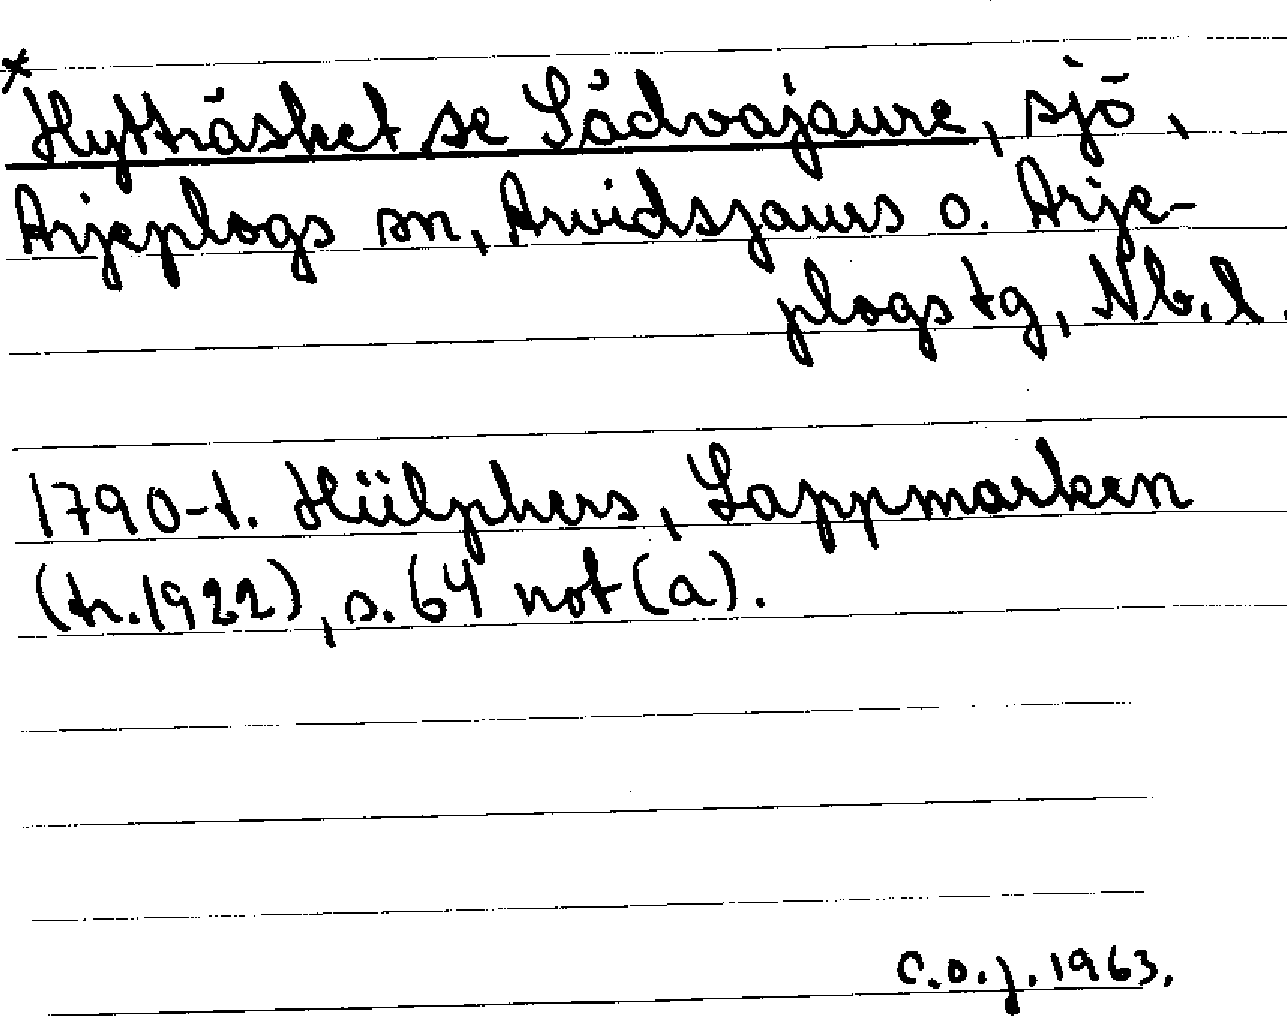 * Hytträsket se Sådvajaure, sjö,
Arjeplogs sn, Arvidsjaurs o. Arje-
plogs tg, Nb. l.
1790-t. Hülphers, Lappmarken
(tr. 1922), s. 64 not (a).
C.O.J. 1963.